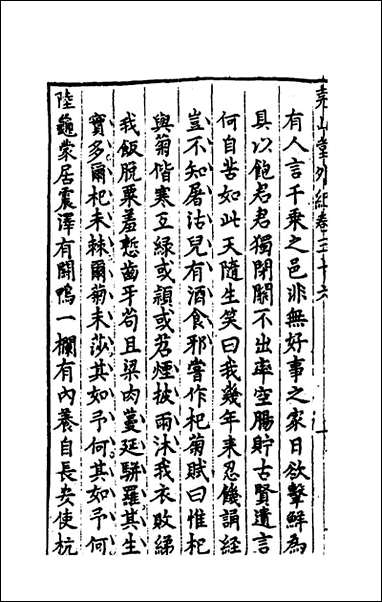 堯山堂外紀卷三十六
有人言千乗之邑非無好事之家日欲擊鮮為
具以飽君君獨閉關不出率空腸貯古賢遺言
何自苦如此天隨生笑曰我幾年来忍饑誦經
豈不知屠沽兒有酒食邪嘗作杞菊賦曰惟杞
與菊偕寒互緑或頴或苕煙披雨沐我衣敗綈
我飯脫粟羞慙齒牙苟且梁肉蔓延駢羅其生
實多爾杞未棘爾菊未莎其如予何其如予何
陸龜蒙居震澤有鬪鴨一欄有內養自長安使杭